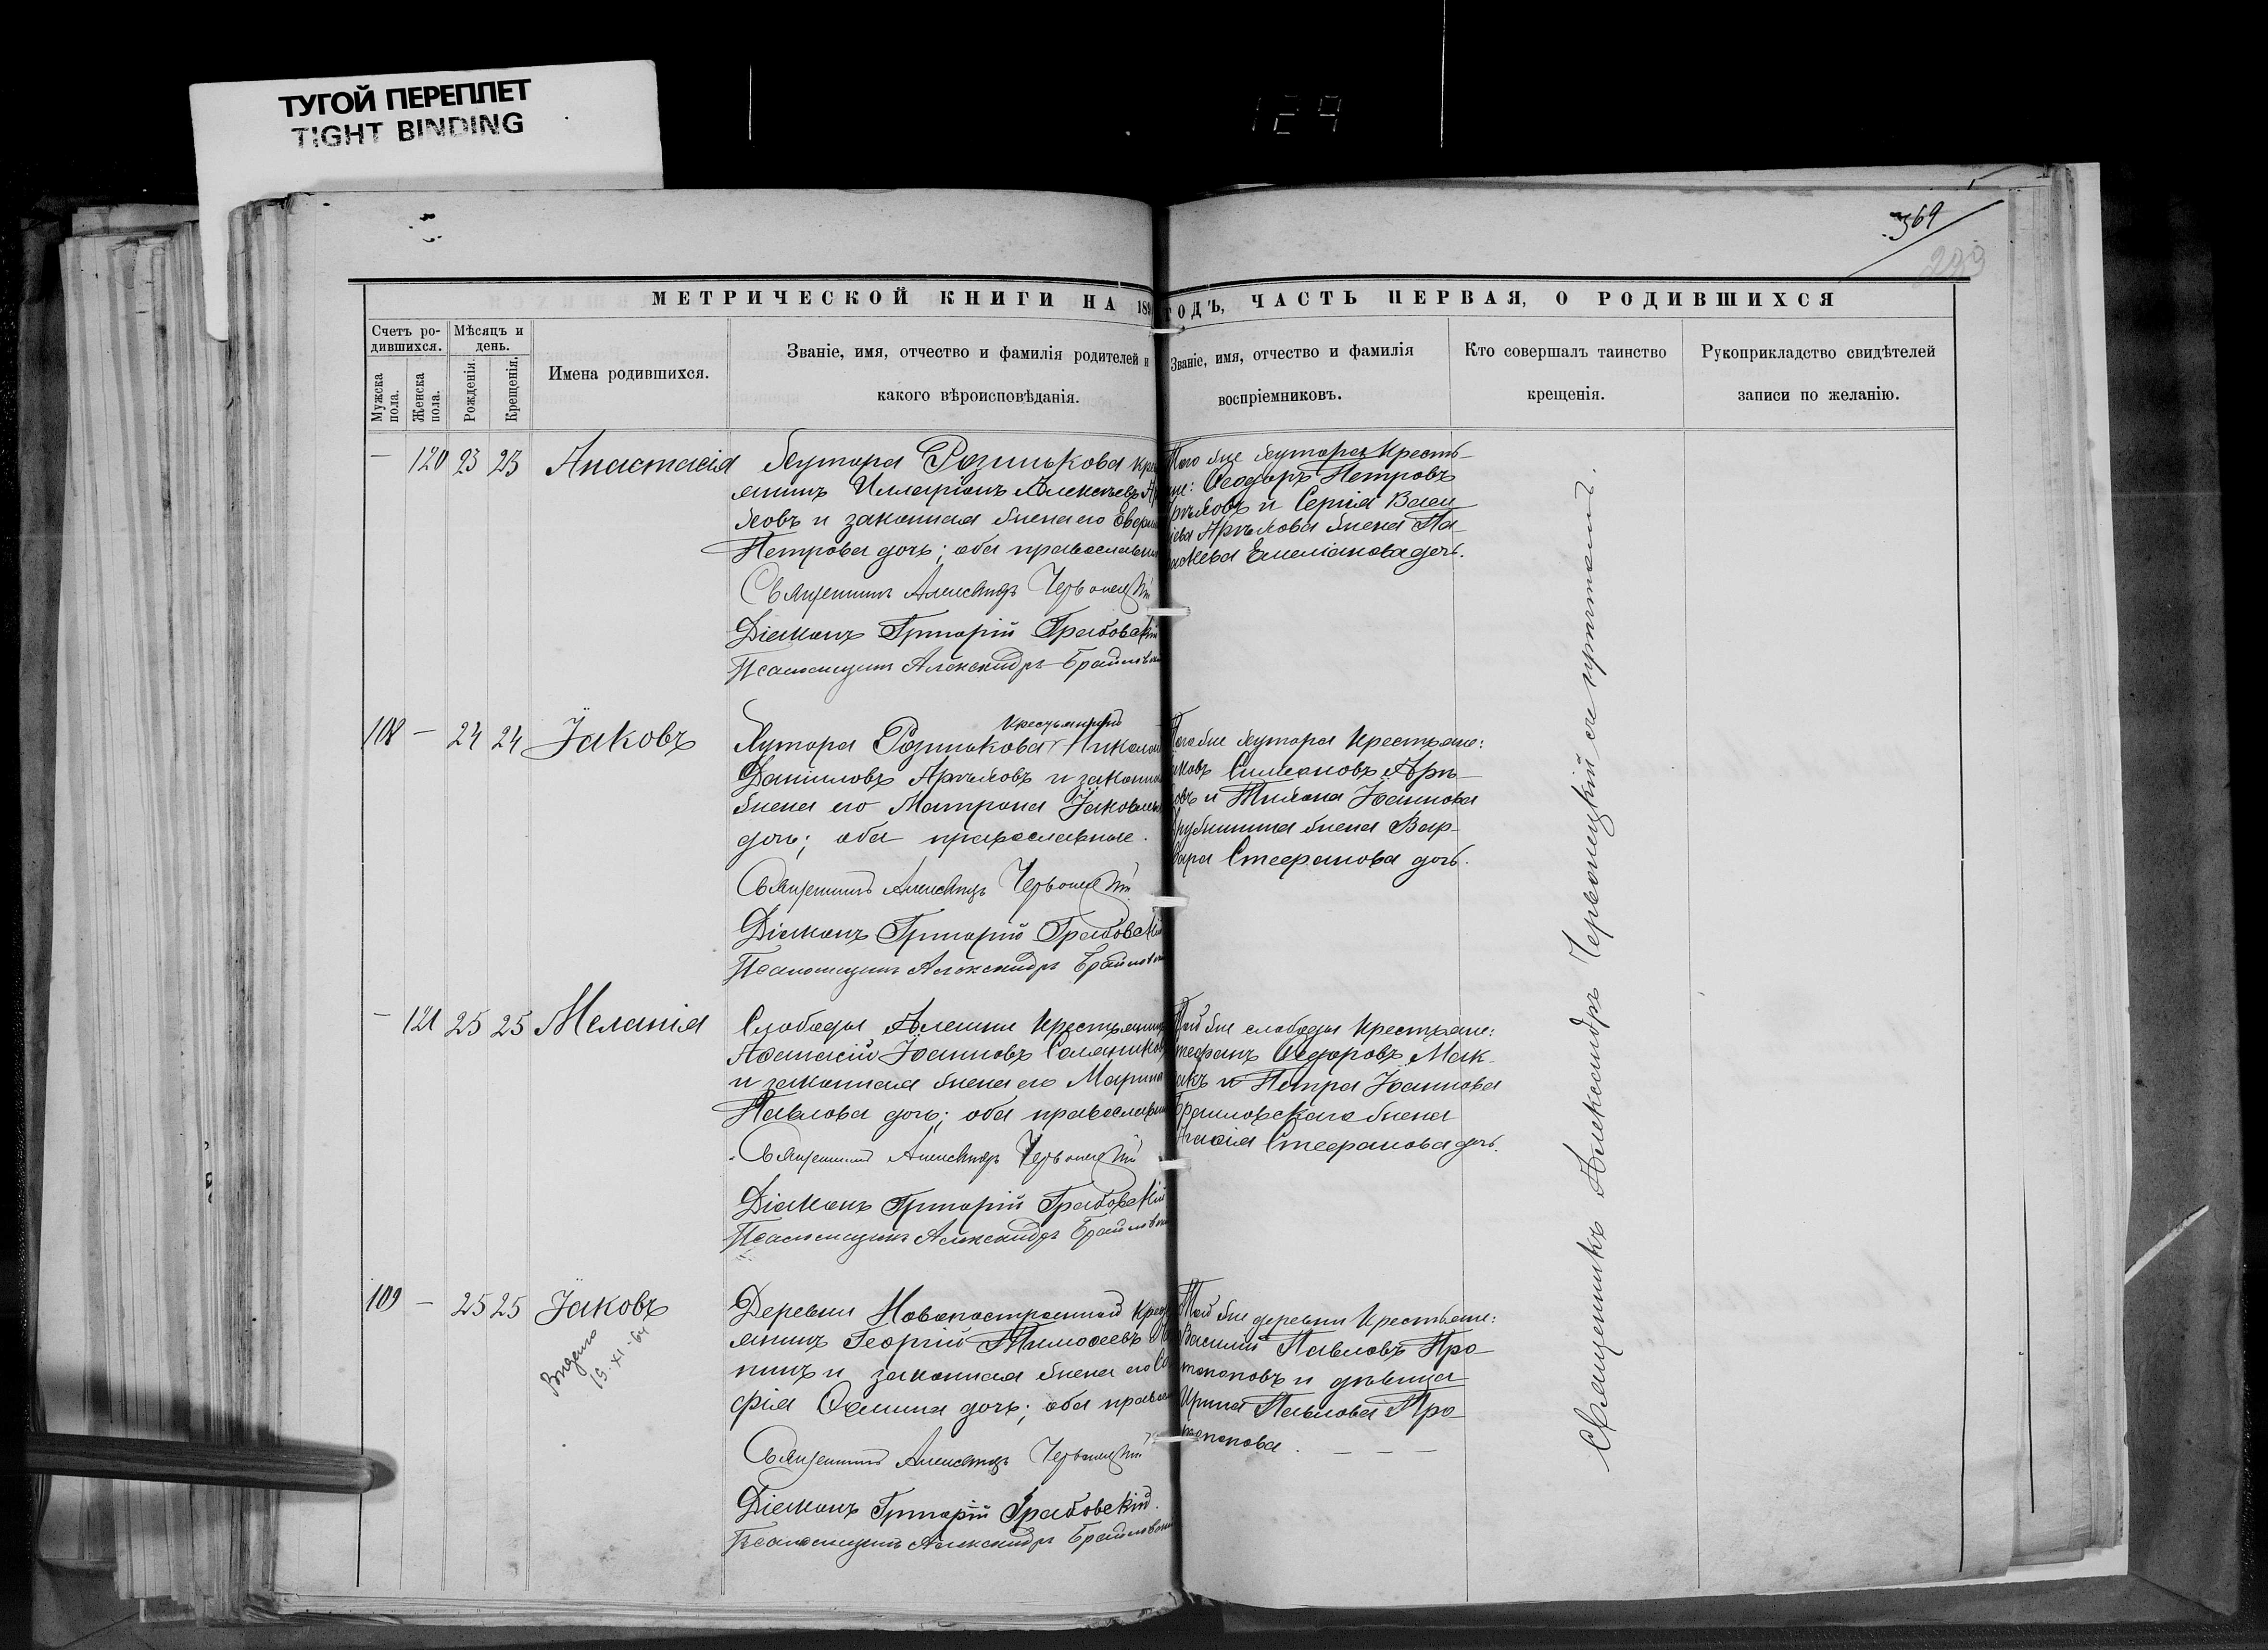 ТУГОЙ ПЕРЕПЛЕТ
TIGHT BINDING
129
369
293
МЕТРИЧЕСКОЙ КНИГИ НА 189
ГОДЪ, ЧАСТЬ ПЕРВАЯ, О РОДИВШИХСЯ
Счетъ ро-
дившихся.
Мѣсяцъ и
день.
Мужска
пола.
Женска
пола.
Рожденія.
Крещенія.
Имена родившихся.
Званіе, имя, отчество и фамилія родителей и
какого вѣроисповѣданія.
Званіе, имя, отчество и фамилія
воспріемниковъ.
Кто совершалъ таинство
крещенія.
Рукоприкладство свидѣтелей
записи по желанію.
— 120 23 23 Анастасія
Хутора Розинькова кре
янинъ Илларіонъ Алексѣевъ
ховъ и законная жена его
Петрова дочь; оба православн
Священникъ Александръ Червонецкій
Діаконъ Григорій Грабовскій
Псаломщикъ Александръ Браиловск
Того же хутора Кресть-
яне: Ѳеодоръ Петровъ
и Сергія Васи
жена Па-
Емеліанова дочь.
108 — 24 24 Іаковъ
Крестьянинъ
Хутора Розинькова Никола
Даніиловъ и законна
жена его Матрона Іаковлев
дочь; оба православные.
Священникъ Александръ Червонецкій
Діаконъ Григорій Грабовскій
Псаломщикъ Александръ Браиловск
Того же хутора Крестьяне:
Симеоновъ
и Тихона Іоаннова
жена Вар-
вара Стефанова дочь.
— 121 25 25 Меланія
Слободы Алешки Крестьянинъ
Аѳанасій Іоанновъ
и законная жена его Марина
Павлова дочь; оба православн
Священникъ Александръ Червонецкій
Діаконъ Григорій Грабовскій
Псаломщикъ Александръ Браиловск
Той же слободы Крестьяне:
Стефанъ Ѳедоровъ Мак-
и Петра Іоаннова
Браиловскаго жена
Стефанова дочь.
109 — 25 25 Іаковъ
Видано
19-XI-64
Деревни Новопостроенной Крест
янинъ Георгій Тимоѳеевъ
нинъ и законная жена его Со
фія Ѳомина дочь; оба правос
Священникъ Александръ Червонецкій
Діаконъ Григорій Грабовскій.
Псаломщикъ Александръ Браиловск
Той же деревни Крестьяне:
Василій Павловъ Про-
топоповъ и дѣвица
Ирина Павлова Про-
топопова.
Священникъ Александръ Червонецкій съ причтомъ.